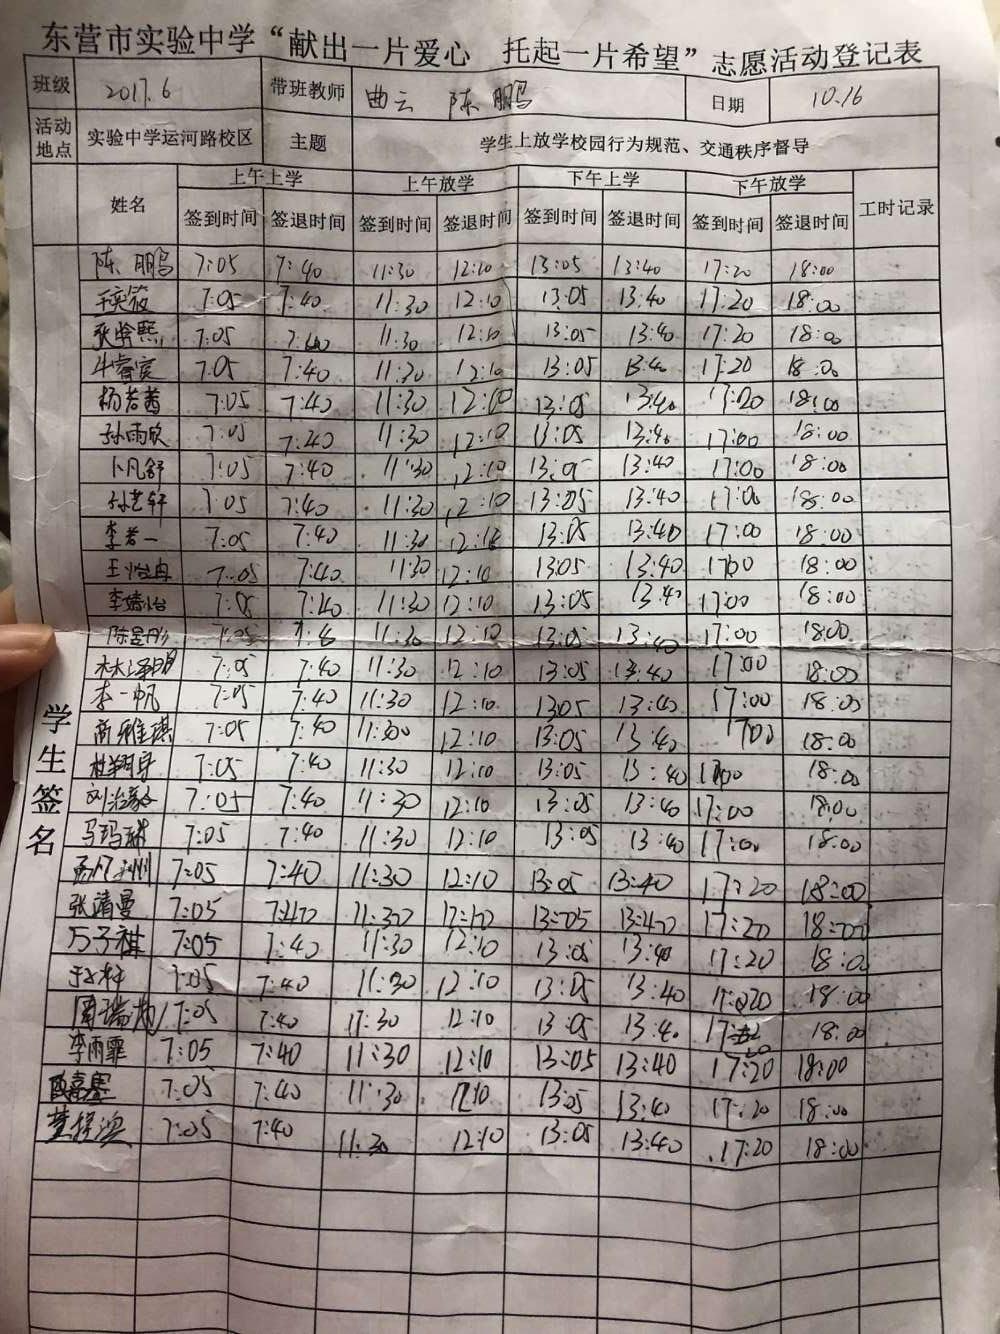 东营市实验中学“献出一片爱心 托起一片希望”志愿活动登记表
班级 2017.6 带班教师 曲云 陈鹏 日期 10.16
活动地点 实验中学运河路校区 主题 学生上放学校园行为规范、交通秩序督导
姓名 上午上学 上午放学 下午上学 下午放学 工时记录
签到时间 签退时间 签到时间 签退时间 签到时间 签退时间 签到时间 签退时间
学生签名
陈鹏 7:05 7:40 11:30 12:10 13:05 13:40 17:20 18:00
7:05 7:40 11:30 12:10 13:05 13:40 17:20 18:00
7:05 7:40 11:30 12:10 13:05 13:40 17:20 18:00
牛睿宾 7:05 7:40 11:30 12:10 13:05 13:40 17:20 18:00
杨若茜 7:05 7:40 11:30 12:10 13:05 13:40 17:20 18:00
孙雨欣 7:05 7:40 11:30 12:10 13:05 13:40 17:00 18:00
卜凡舒 7:05 7:40 11:30 12:10 13:05 13:40 17:00 18:00
孙艺轩 7:05 7:40 11:30 12:10 13:05 13:40 17:00 18:00
李若一 7:05 7:40 11:30 12:10 13:05 13:40 17:00 18:00
王怡冉 7:05 7:40 11:30 12:10 13:05 13:40 17:00 18:00
李婧怡 7:05 7:40 11:30 12:10 13:05 13:40 17:00 18:00
陈昱彤 7:05 7:40 11:30 12:10 13:05 13:40 17:00 18:00
林泽明 7:05 7:40 11:30 12:10 13:05 13:40 17:00 18:00
李一帆 7:05 7:40 11:30 12:10 13:05 13:40 17:00 18:00
商雅琪 7:05 7:40 11:30 12:10 13:05 13:40 17:00 18:00
7:05 7:40 11:30 12:10 13:05 13:40 17:00 18:00
7:05 7:40 11:30 12:10 13:05 13:40 17:00 18:00
马玛琳 7:05 7:40 11:30 12:10 13:05 13:40 17:00 18:00
7:05 7:40 11:30 12:10 13:05 13:40 17:20 18:00
张靖曼 7:05 7:40 11:30 12:10 13:05 13:40 17:20 18:00
万子祺 7:05 7:40 11:30 12:10 13:05 13:40 17:20 18:00
7:05 7:40 11:30 12:10 13:05 13:40 17:20 18:00
7:05 7:40 17:30 12:10 13:05 13:40 17:20 18:00
李雨霏 7:05 7:40 11:30 12:10 13:05 13:40 17:20 18:00
7:05 7:40 11:30 12:10 13:05 13:40 17:20 18:00
7:05 7:40 11:30 12:10 13:05 13:40 17:20 18:00